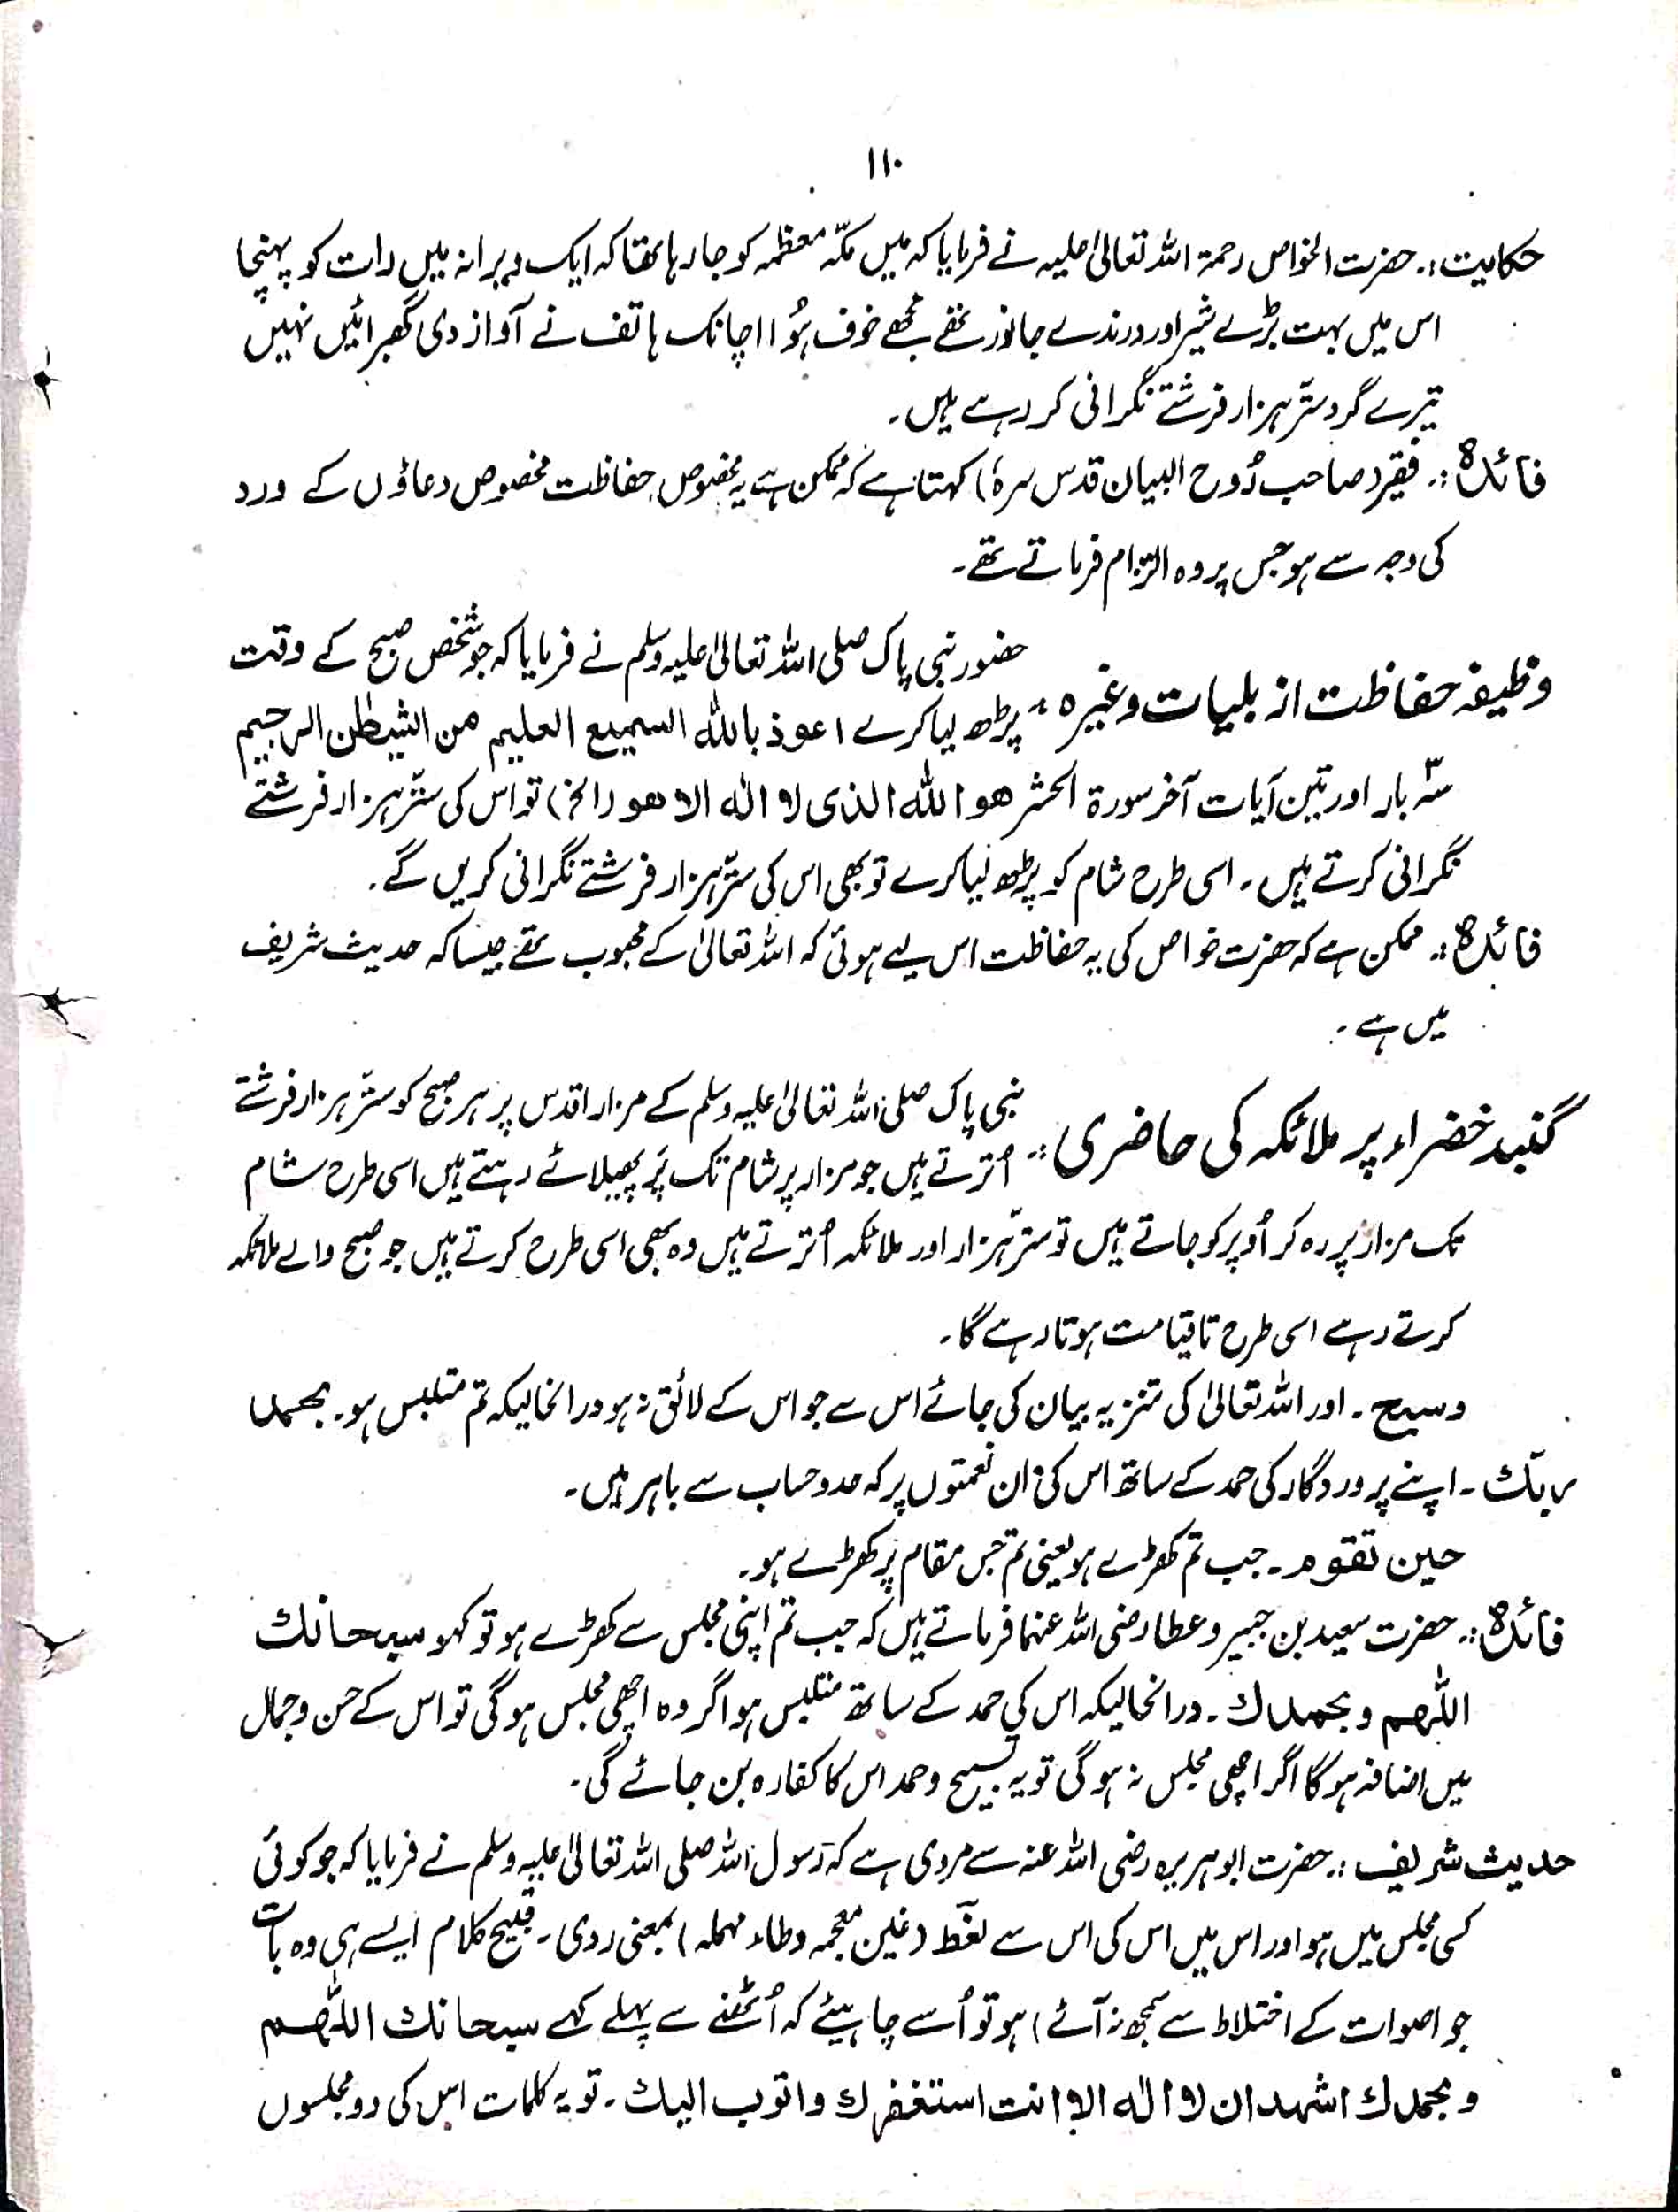 ۱۱۰
حکایت :۔ حضرت الخواص رحمۃ اللہ تعالیٰ علیہ نے فرمایا کہ میں مکّہ معظمہ کو جا رہا تھا کہ ایک ویرانہ میں رات کو پہنچا
اس میں بہت بڑے شیر اور درندے جانور تھے مجھے خوف ہُوا اچانک ہاتف نے آواز دی گھبرائیں نہیں
تیرے گرد ستّر ہزار فرشتے نگرانی کر رہے ہیں ۔
فائدہ :۔ فقیر (صاحب رُوح البیان قدس سرہٗ) کہتا ہے کہ ممکن ہے یہ مخصوص حفاظت مخصوص دعاؤں کے ورد
کی وجہ سے ہو جس پر وہ التزام فرماتے تھے ۔
وظیفہ حفاظت از بلیات وغیرہ :۔ حضور نبی پاک صلی اللہ تعالیٰ علیہ وسلم نے فرمایا کہ جو شخص صبح کے وقت
پڑھ لیا کرے اعوذ باللہ السمیع العلیم من الشیطٰن الرجیم
۳ سہ بار اور تین آیات آخر سورۃ الحشر ھو اللہ الذی لا الٰہ الا ھو (الخ) تو اس کی ستّر ہزار فرشتے
نگرانی کرتے ہیں ۔ اسی طرح شام کو پڑھ لیا کرے تو بھی اس کی ستّر ہزار فرشتے نگرانی کریں گے ۔
فائدہ :۔ ممکن ہے کہ حضرت خواص کی یہ حفاظت اس لیے ہوئی کہ اللہ تعالیٰ کے محبوب تھے جیسا کہ حدیث شریف
میں ہے ۔
گنبد خضراء پر ملائکہ کی حاضری :۔ نبی پاک صلی اللہ تعالیٰ علیہ وسلم کے مزار اقدس پر ہر صبح کو ستّر ہزار فرشتے
اُترتے ہیں جو مزار پر شام تک پَر پھیلائے رہتے ہیں اسی طرح شام
تک مزار پر رہ کر اُوپر کو جاتے ہیں تو ستّر ہزار اور ملائکہ اُترتے ہیں وہ بھی اسی طرح کرتے ہیں جو صبح والے ملائکہ
کرتے رہے اسی طرح تا قیامت ہوتا رہے گا ۔
وسبح ۔ اور اللہ تعالیٰ کی تنزیہ بیان کی جائے اس سے جو اس کے لائق نہ ہو درانحالیکہ تم متلبس ہو ۔ بحمد
ربّک ۔ اپنے پروردگار کی حمد کے ساتھ اس کی ان نعمتوں پر کہ حد و حساب سے باہر ہیں ۔
حین تقوم ۔ جب تم کھڑے ہو یعنی تم جس مقام پر کھڑے ہو ۔
فائدہ :۔ حضرت سعید بن جبیر و عطا رضی اللہ عنہما فرماتے ہیں کہ جب تم اپنی مجلس سے کھڑے ہو تو کہو سبحانك
اللّٰھم وبحمدك ۔ درانحالیکہ اس کی حمد کے ساتھ متلبس ہو اگر وہ اچھی مجلس ہو گی تو اس کے حسن و جمال
میں اضافہ ہو گا اگر اچھی مجلس نہ ہو گی تو یہ تسبیح و حمد اس کا کفارہ بن جائے گی ۔
حدیث شریف :۔ حضرت ابوہریرہ رضی اللہ عنہ سے مروی ہے کہ رسول اللہ صلی اللہ تعالیٰ علیہ وسلم نے فرمایا کہ جو کوئی
کسی مجلس میں ہو اور اس میں اس کی اس سے لغَط (غین معجمہ و طاء مہملہ) بمعنی ردی ۔ قبیح کلام ایسے ہی وہ بات
جو اصوات کے اختلاط سے سمجھ نہ آئے) ہو تو اُسے چاہیئے کہ اُٹھنے سے پہلے کہے سبحانك اللّٰھم
وبحمدك اشھد ان لا الٰہ الا انت استغفرك واتوب الیك ۔ تو یہ کلمات اس کی دو مجلسوں